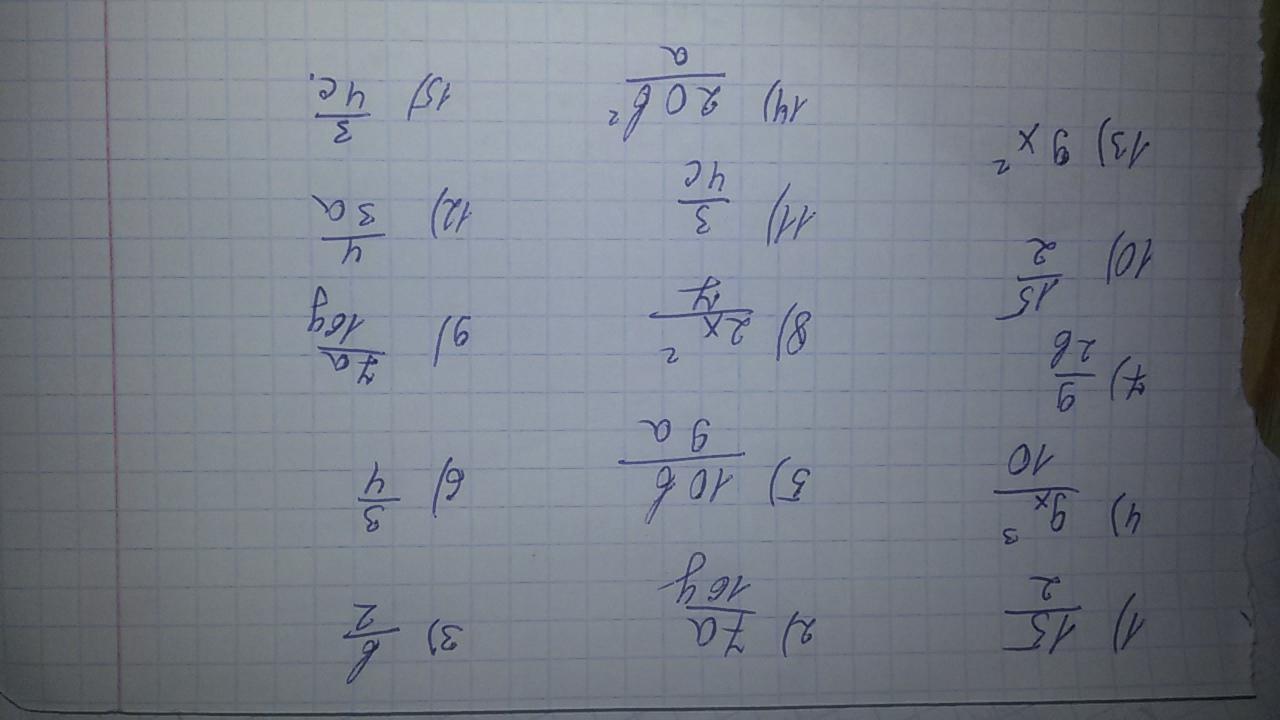 1) 15/2 2) 7a/16y 3) b/2
4) 9x³/10 5) 10b/9a 6) 3/4
7) 9/2b 8) 2x²/y 9) 7a/16y
10) 15/2 11) 3/4c 12) 4/3a
13) 9x² 14) 20b²/a 15) 3/4c.